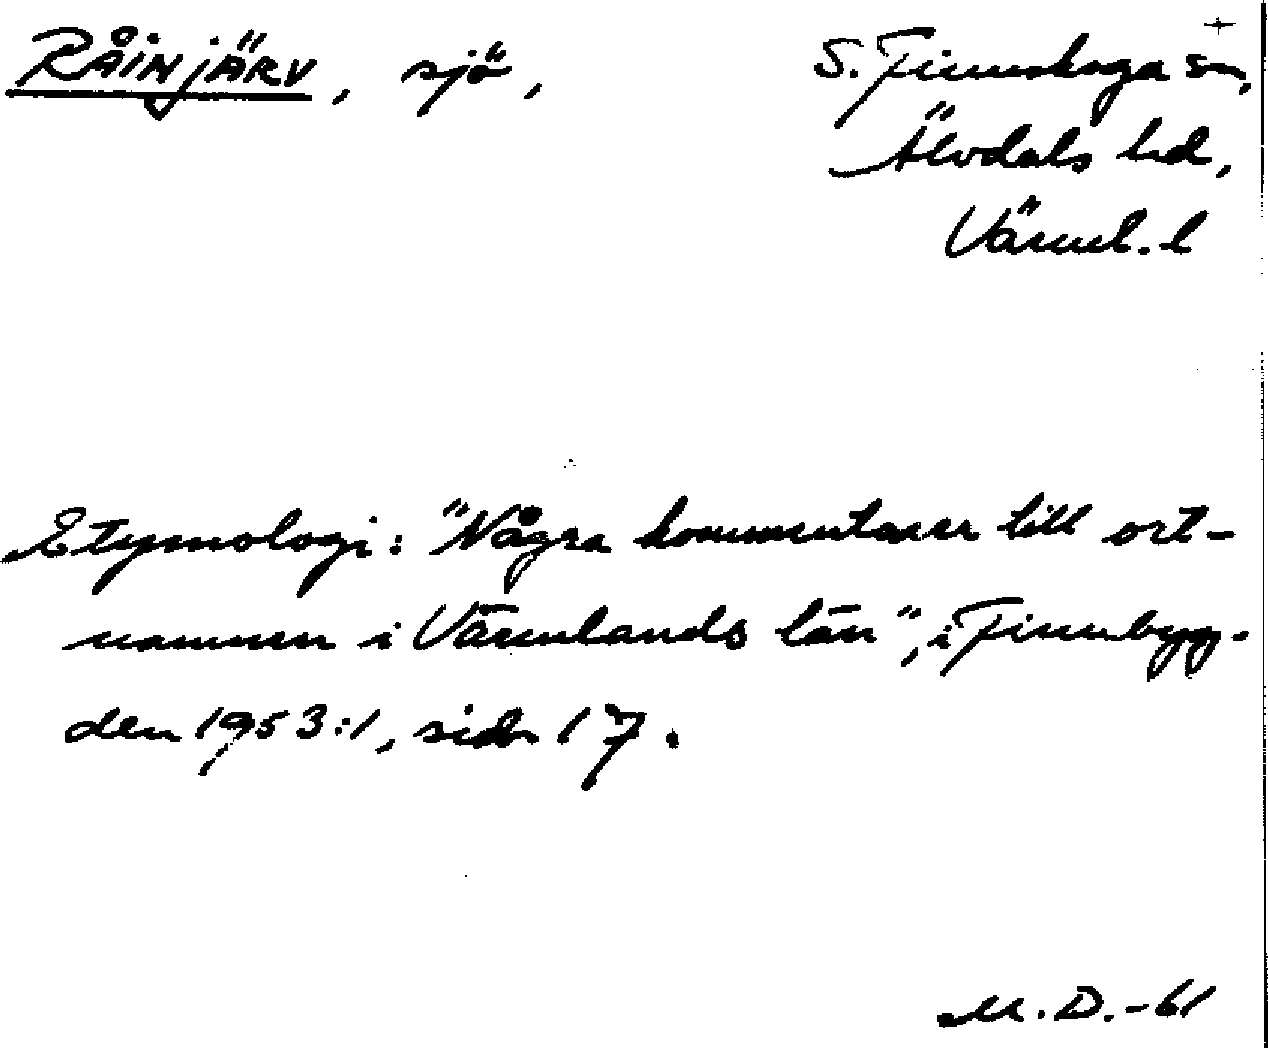 RÅINJÄRV, sjö, S. Finnskoga sn,
Älvdals hd,
Värml. l
Etymologi: "Några kommentarer till ort-
namnen i Värmlands län", i Finnbyg-
den 1953:1, sid 17.
M.D.-61